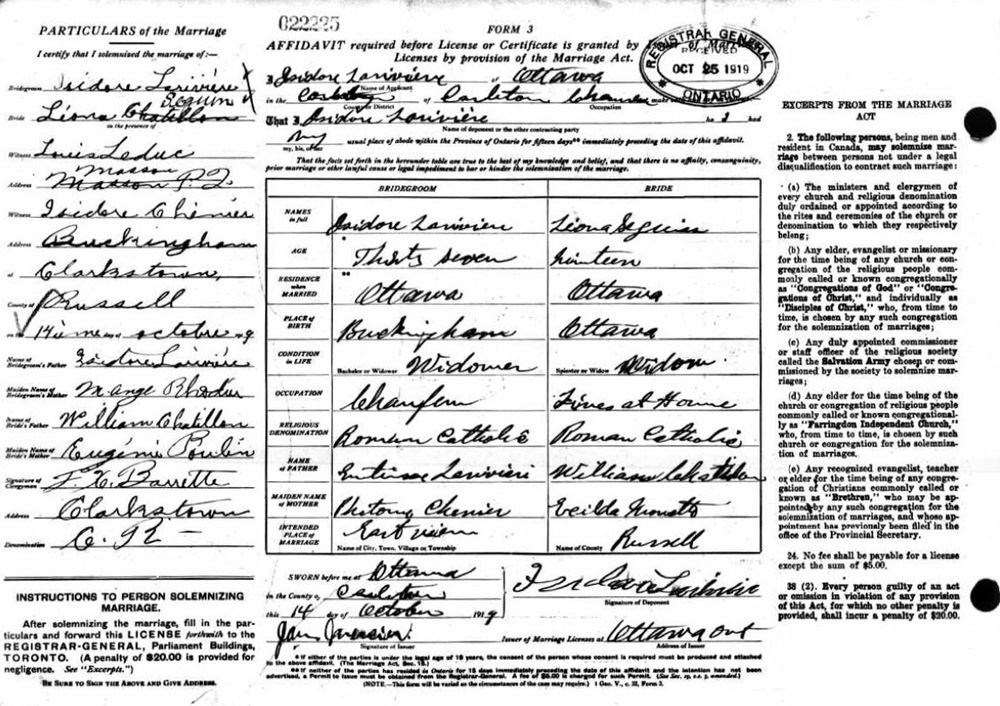 PARTICULARS of the Marriage
I certify that I solemnised the marriage of:—
Bridegroom Isidore Larivière
Seguin
Bride Léona Chatillon
in the presence of
Witness Louis Leduc
Masson
Address Masson P. Q.
Witness Isidore Chénier
Address Buckingham
at Clarkstown,
County of Russell
on 14ième day of octobre 19
Name of Bridegroom's Father Isidore Larivière
Maiden Name of Bridegroom's Mother
Name of Bride's Father William Chatillon
Maiden Name of Bride's Mother Eugénie Poulin
Signature of Clergyman F. X. Barrette
Address Clarkstown
Denomination
INSTRUCTIONS TO PERSON SOLEMNIZING MARRIAGE.
After solemnizing the marriage, fill in the par-
ticulars and forward this LICENSE forthwith to the
REGISTRAR-GENERAL, Parliament Buildings,
TORONTO. (A penalty of $20.00 is provided for
negligence. See "Excerpts.")
BE SURE TO SIGN THE ABOVE AND GIVE ADDRESS.
022225
FORM 3
AFFIDAVIT required before License or Certificate is granted by
Licenses by provision of the Marriage Act.
REGISTRAR GENERAL
RECEIVED
OCT 25 1919
ONTARIO
I Isidore Larivière of Ottawa
Name of Applicant
in the of Carleton
County or District
Occupation
That I Isidore Larivière
Name of deponent or the other contracting party
my usual place of abode within the Province of Ontario for fifteen days immediately preceding the date of this affidavit.
my, his, or her
That the facts set forth in the hereunder table are true to the best of my knowledge and belief, and that there is no affinity, consanguinity,
prior marriage or other lawful cause or legal impediment to bar or hinder the solemnization of the marriage.
BRIDEGROOM BRIDE
NAMES in full Isidore Larivière Léona Seguin
AGE Thirty seven nineteen
RESIDENCE when MARRIED Ottawa Ottawa
PLACE of BIRTH Buckingham Ottawa
CONDITION in LIFE Bachelor or Widower Widower Spinster or Widow Widow
OCCUPATION Chauffeur Lives at Home
RELIGIOUS DENOMINATION Roman Catholic Roman Catholic
NAME of FATHER Larivière William Chatillon
MAIDEN NAME of MOTHER Chenier
INTENDED PLACE of MARRIAGE Eastview Russell
Name of City, Town, Village or Township Name of County
SWORN before me at Ottawa
in the County of Carleton
this 14 day of October 1919
Isidore Larivière
Signature of Deponent
Issuer of Marriage Licenses at Ottawa Ont
Address of Issuer
If either of the parties is under the legal age of 18 years, the consent of the person whose consent is required must be produced and attached
to the above affidavit. (The Marriage Act, Sec. 15.)
If neither of the parties has resided in Ontario for 15 days immediately preceding the date of this affidavit and the intention has not been
advertised, a Permit to Issue must be obtained from the Registrar-General. A fee of $5.00 is charged for such Permit.
(NOTE.—This form will be varied as the circumstances of the case may require.) 1 Geo. V., c. 32, Form 3.
EXCERPTS FROM THE MARRIAGE
ACT
2. The following persons, being men and
resident in Canada, may solemnize mar-
riage between persons not under a legal
disqualification to contract such marriage:
(a) The ministers and clergymen of
every church and religious denomination
duly ordained or appointed according to
the rites and ceremonies of the church or
denomination to which they respectively
belong;
(b) Any elder, evangelist or missionary
for the time being of any church or con-
gregation of the religious people com-
monly called or known congregationally
as "Congregations of God" or "Congre-
gations of Christ," and individually as
"Disciples of Christ," who, from time to
time, is chosen by any such congregation
for the solemnization of marriages;
(c) Any duly appointed commissioner
or staff officer of the religious society
called the Salvation Army chosen or com-
missioned by the society to solemnize mar-
riages;
(d) Any elder for the time being of the
church or congregation of religious people
commonly called or known congregational-
ly as "Farringdon Independent Church,"
who, from time to time, is chosen by such
church or congregation for the solemniza-
tion of marriages.
(e) Any recognized evangelist, teacher
or elder for the time being of any congre-
gation of Christians commonly called or
known as "Brethren," who may be ap-
pointed by any such congregation for the
solemnization of marriages, and whose ap-
pointment has previously been filed in the
office of the Provincial Secretary.
24. No fee shall be payable for a license
except the sum of $5.00.
38 (2). Every person guilty of an act
or omission in violation of any provision
of this Act, for which no other penalty is
provided, shall incur a penalty of $20.00.